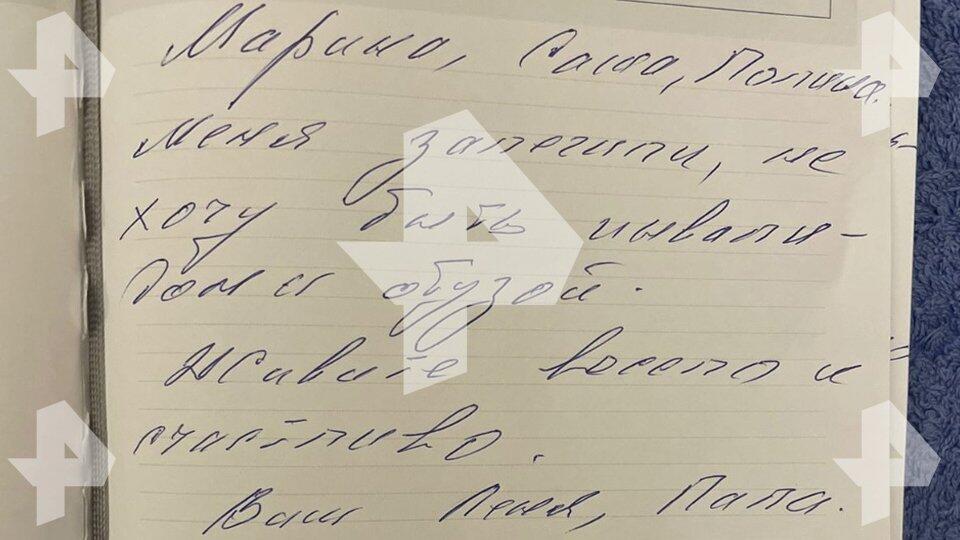 Марина, Саша, Полина.
Меня залечили, не
хочу быть инвали-
дом и обузой.
Живите весело и
счастливо.
Ваш Леня, Папа.